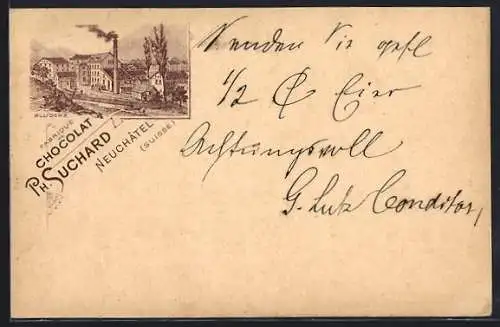 FABRIQUE
DE
CHOCOLAT
PH. SUCHARD
NEUCHÂTEL
(SUISSE)
Senden Sie gefl
1/2 Ctr Eier
Achtungsvoll
G. Lutz Conditor,